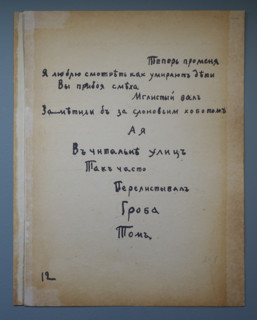 Теперь про меня
Я люблю смотрѣть как умирают дѣти
Вы прибоя смѣха
Мглистый вал
Замѣтили бъ за слоновым хоботомъ
А я
Въ читальнѣ улицъ
Такъ часто
Перелистывалъ
Гроба
Томъ
12